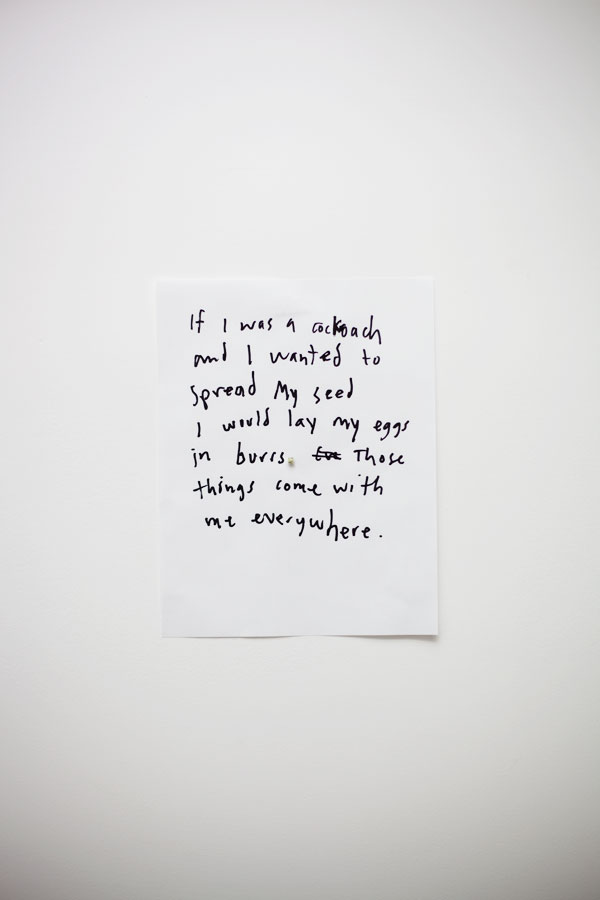 If I was a cockoach
and I wanted to
spread My seed
I would lay my eggs
in burrs. Those
things come with
me everywhere.